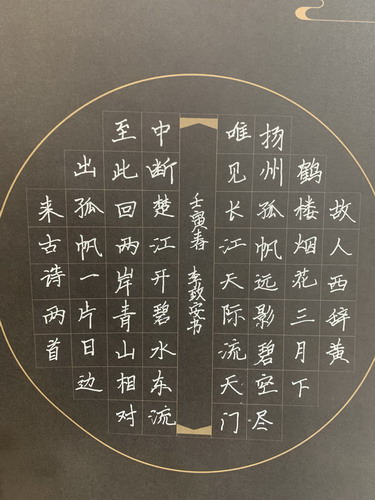 故人西辞黄
鹤楼烟花三月下
扬州孤帆远影碧空尽
唯见长江天际流天门
中断楚江开碧水东流
至此回两岸青山相对
出孤帆一片日边
来古诗两首
壬寅春 李致安书